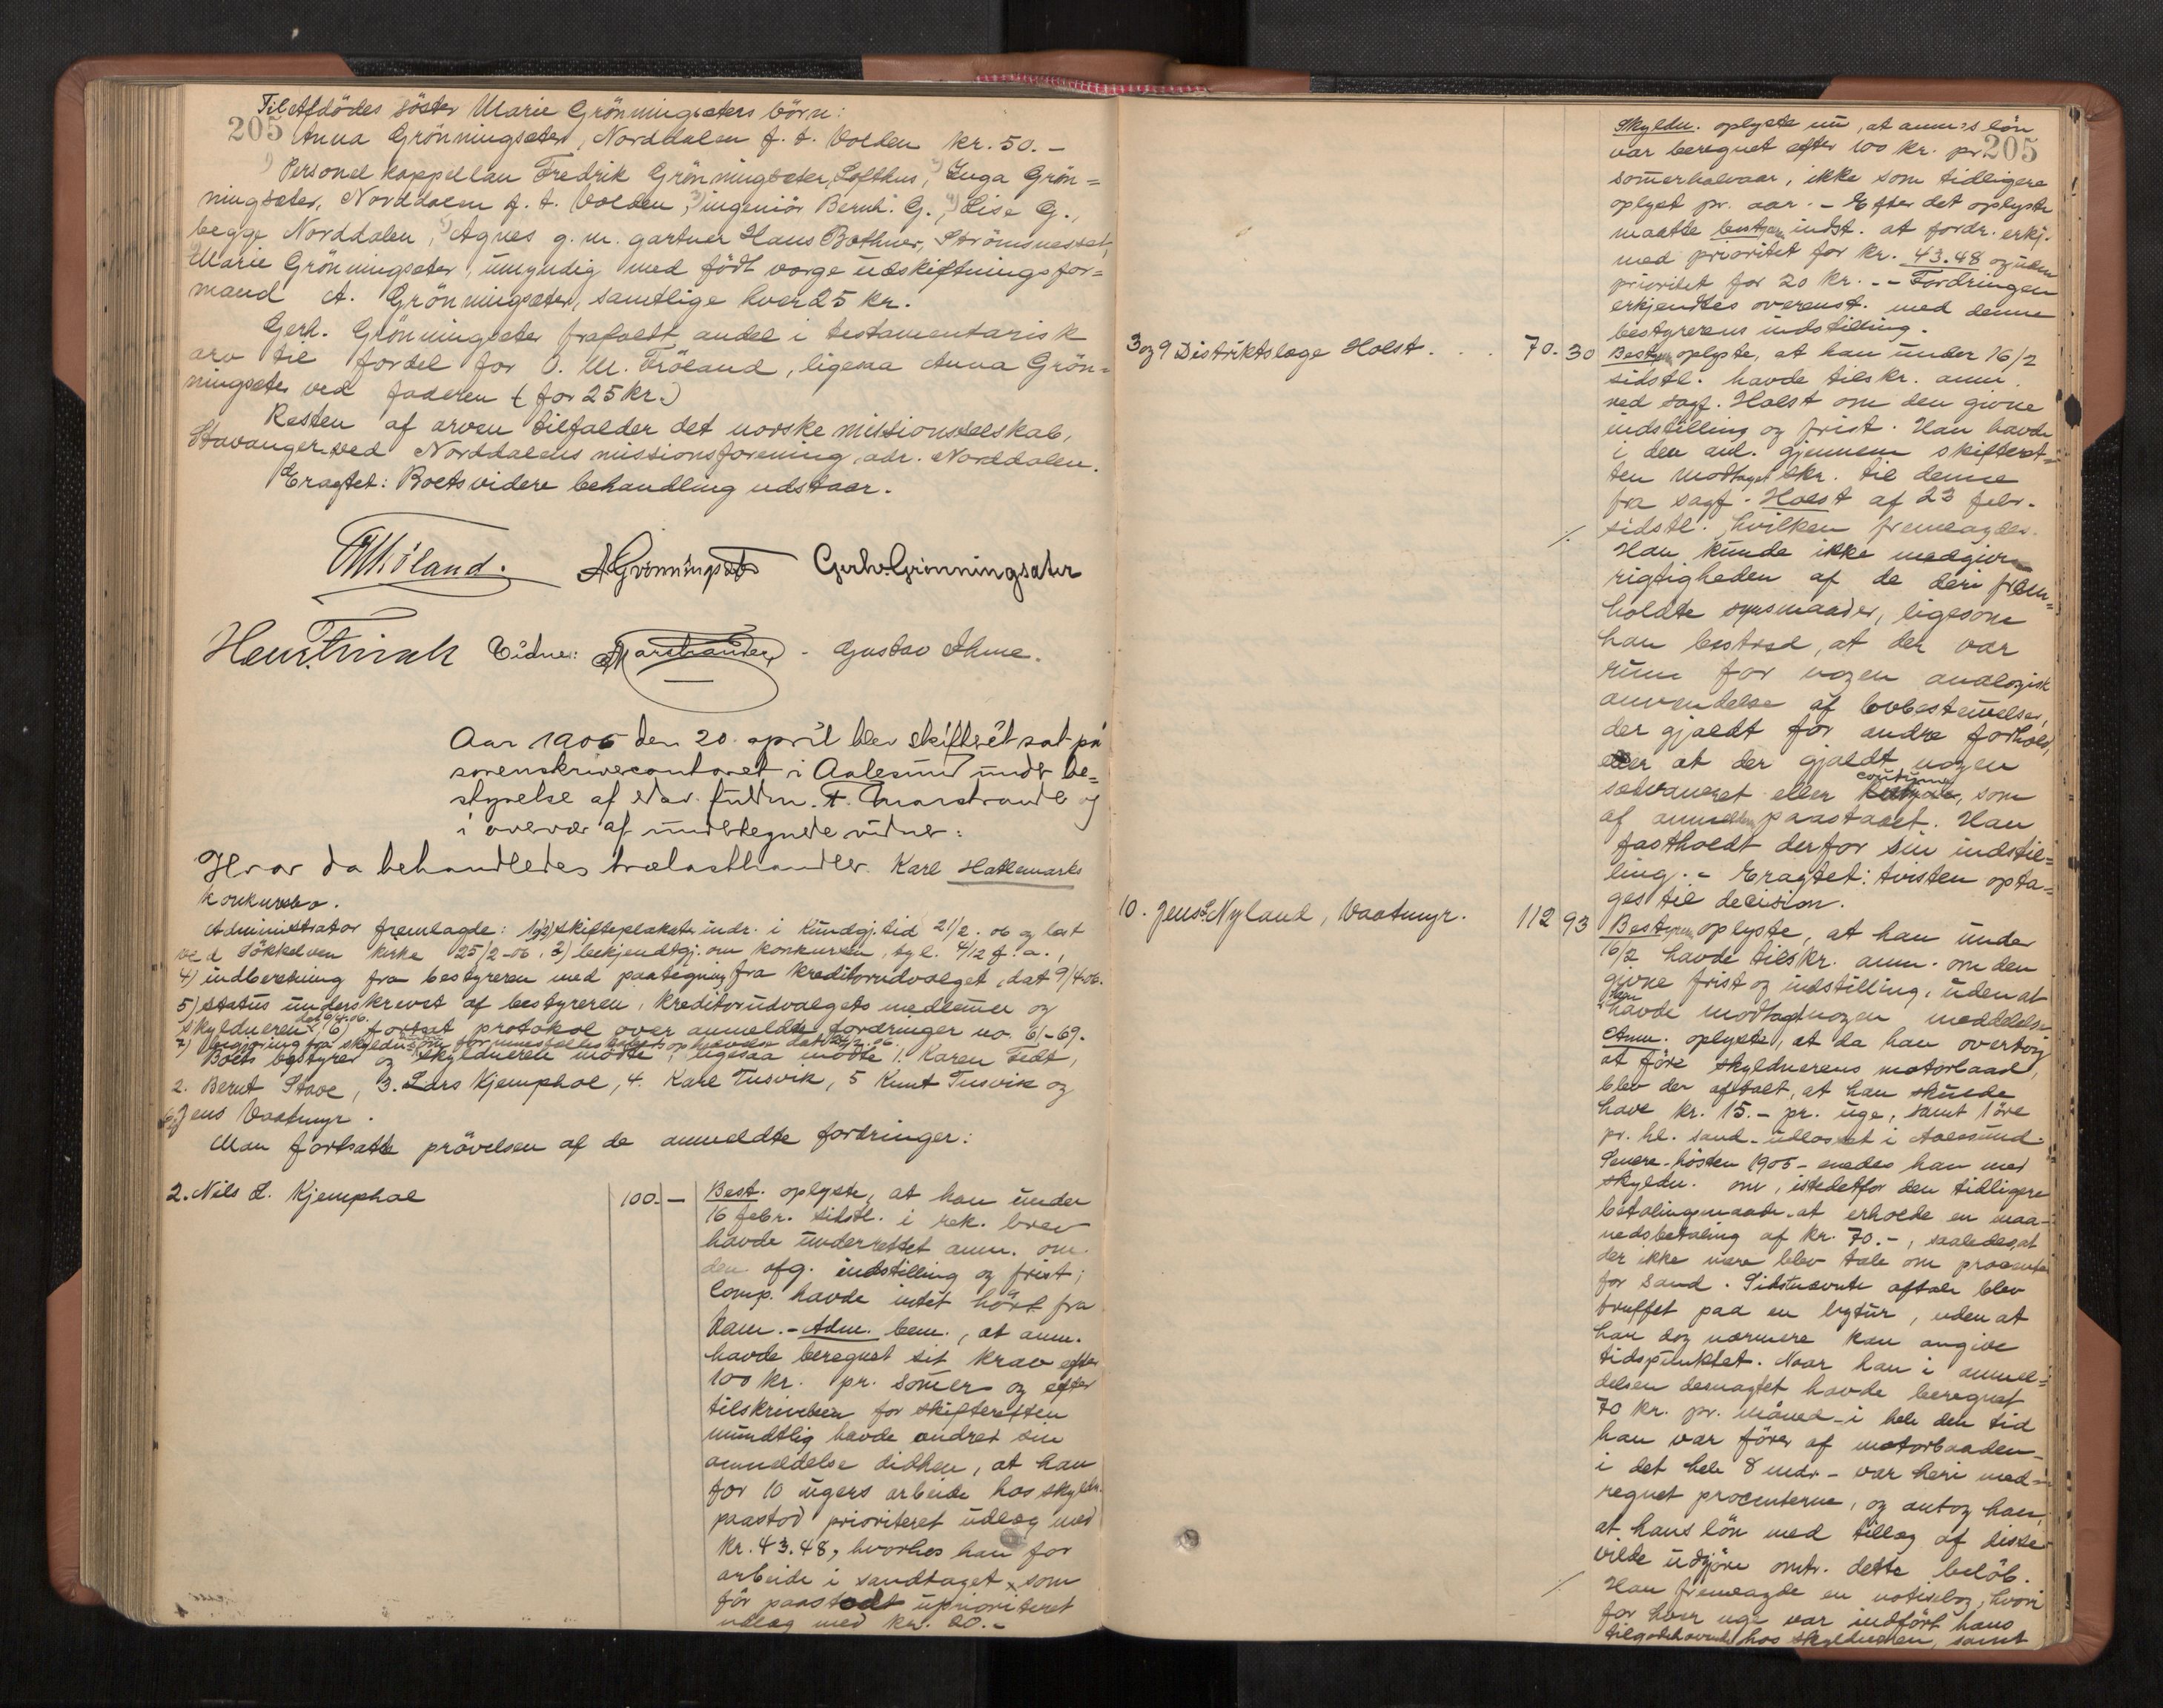 Til Afdödes söster Marie Grönningsæters börn:
205 Anna Grönningsæter, Norddalen f. t. Volden kr. 50.-
1) Personel kappellan Fredrik Grönningsæter, Lofthus, 2) Inga Grön=
ningsæter, Norddalen f. t. Volden, 3) ingeniör Bernh. G., 4) Lise G.,
begge Norddalen, 5) Agnes g. m. gartner Hans Bothner, Strömsnesset,
Marie Grönningsæter, umyndig med födt værge udskiftningsfor=
mand A. Grönningsæter, samtlige hver 25 kr.
Gerh. Grönningsæter frafaldt andel i testamentarisk
arv til fordel for O. M. Fröland, ligesaa Anna Grön=
ningsæter ved faderen (for 25 kr.)
Resten af arven tilfalder det norske missionsselskab,
Stavanger ved Norddalens missionsforening, adr. Norddalen.
Eragtet: Boets videre behandling udstaar.
OMFröland. AGrönningsæter Gerh. Grönningsæter
Henr. Finch Vidne: AMarstrander - Gustav Ihme.
Aar 1906 den 20. april blev skifterét sat på
sorenskrivercontoret i Aalesund under be=
styrelse af edsv. fuldm. A. Marstrander og
i overvær af undertegnede vidner:
Hvor da behandledes trælasthandler Karl Hatlemarks
konkursbo.
Administrator fremlagde: 1 og 2) skifteplakater indr. i Kundgj.tid 21/2. 06 og læst
ved Sökkelven kirke 25/2-06, 3) bekjendtgj. om konkursen, tgl. 4/12 f. a.,
4) indberetning fra bestyreren med paategning fra kreditorudvalget, dat 9/4-06.
5) status underskrevet af bestyreren, kreditorudvalgets medlemmer og
skyldneren dat 6/4.06. 6) fortsat protokol over anmeldte fordringer no. 61-69.
7) begjæring fra skyldn. om
Boets bestyrer og skyldneren mödte, ligesaa mödte 1. Karen Fedt,
2. Bernt Stave, 3. Lars Kjemphol, 4. Karl Tusvik, 5 Knut Tusvik og
6) Jens Vaatmyr.
Man fortsatte prövelsen af de anmeldte fordringer:
2. Nils L. Kjemphol 100.-
Best. oplyste, at han under
16 febr. sidstl. i rek. brev
havde underrettet anm. om
den afg. indstilling og frist;
Comp. havde intet hört fra
ham. - Adm. bem., at anm.
havde beregnet sit krav efter
100 kr. pr. sommer og efter
tilskrivelsen for skifteretten
mundtlig havde endret sin
anmeldelse dithen, at han
for 10 ugers arbeide hos skyldn.
paastod prioriteret udlæg med
Kr. 43.48, hvorhos han for
arbeide i sandtaget som
för paastodt uprioriteret
udlæg med Kr. 20.-
Skyldn. oplyste nu, at anm.s lön
var beregnet efter 100 kr. pr. 205
sommerhalvaar, ikke som tidligere
oplyst pr. aar. - Efter det oplyste
maatte bestyreren indst. at fordr. erkj.
med prioritet for kr. 43.48 og uden
prioritet for 20 kr. -- Fordringen
erkjendtes overenst. med denne
bestyrerens indstilling.
3 og 9 Distriktslæge Holst. . . 70. 30
Bestyreren oplyste, at han under 16/2
sidstl. havde tilskr. anm.
ved sagf. Holst om den givne
indstilling og frist. Han havde
i den anl. gjennem skifteret=
ten modtaget skr. til denne
fra sagf. Holst af 23 febr.
sidstl. hvilken fremlagdes.
Han kunde ikke medgive
rigtigheden af de deri frem=
holdte synsmaader, ligesom
han bestred, at der var
rum for nogen analogisk
anvendelse af lovbestemmelser,
der gjaldt for andre forhold,
eller at der gjaldt nogen
sædvaneret eller coutume, som
af anmelderen paastaaet. Han
fastholdt derfor sin indstil=
ling. - Eragtet: tvisten opta=
ges til decision.
10. Jens L. Nyland, Vaatmyr. 112 93
Bestyreren oplyste, at han under
16/2 havde tilskr. anm. om den
givne frist og indstilling, uden at
han havde modtaget nogen meddelelse.
Anm. oplyste, at da han overtog
at före skyldnerens motorbaad,
blev der aftalt, at han skulde
have kr. 15.- pr. uge, samt 1 öre
pr. hl. sand udlosset i Aalesund.
Senere - hösten 1905 - enedes han med
skyldn. om, istedetfor den tidligere
betalingsmaade at erholde en maa=
nedsbetaling af kr. 70.-, saaledes, at
der ikke mere blev tale om procenter
for sand. Sidstnævnte aftale blev
truffet paa en bytur, uden at
han dog nærmere kan angive
tidspunktet. Naar han i anmel=
delsen desuagtet havde beregnet
70 kr. pr. måned i hele den tid
han var förer af motorbaaden -
i det hele 8 mdr. - var heri med=
regnet procenterne, og antog han,
at hans lön med tillæg af disse
vilde udgjöre omtr. dette belöb.
Han fremlagde en notisbog, hvori
for hver uge var indfört hans
tilgodehavende hos skyldneren, samt